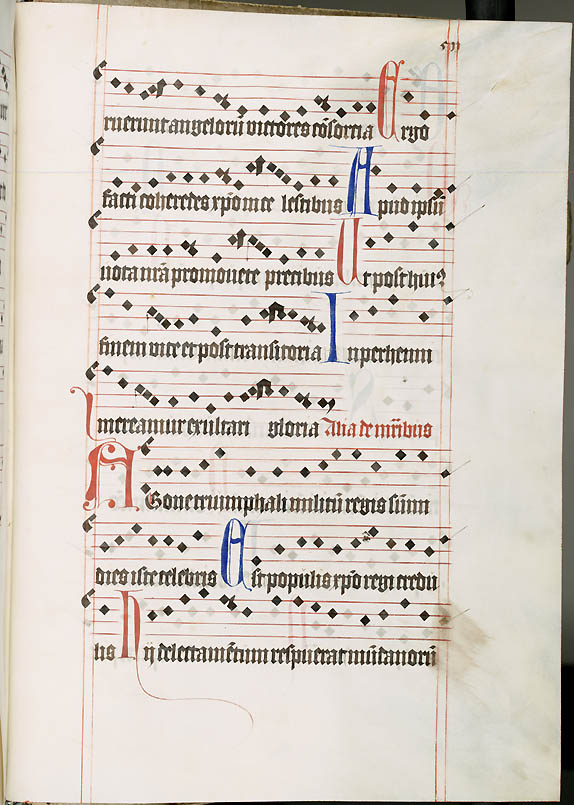 ruerunt angelorū victores cōsorcia Ergo
facti coheredes xp̄o in ce lestibus Apud ipsū
vota nr̄a promouete precibus Ut post huiꝰ
finem vite et post transitoria In perhenni
mereamur exultari gloria Alia de mr̄ibus
Agone triumphali militū regis sūmi
dies iste celebris Est populis xp̄o regi credu
lis Hij delectamētum respuerāt mūdanorū